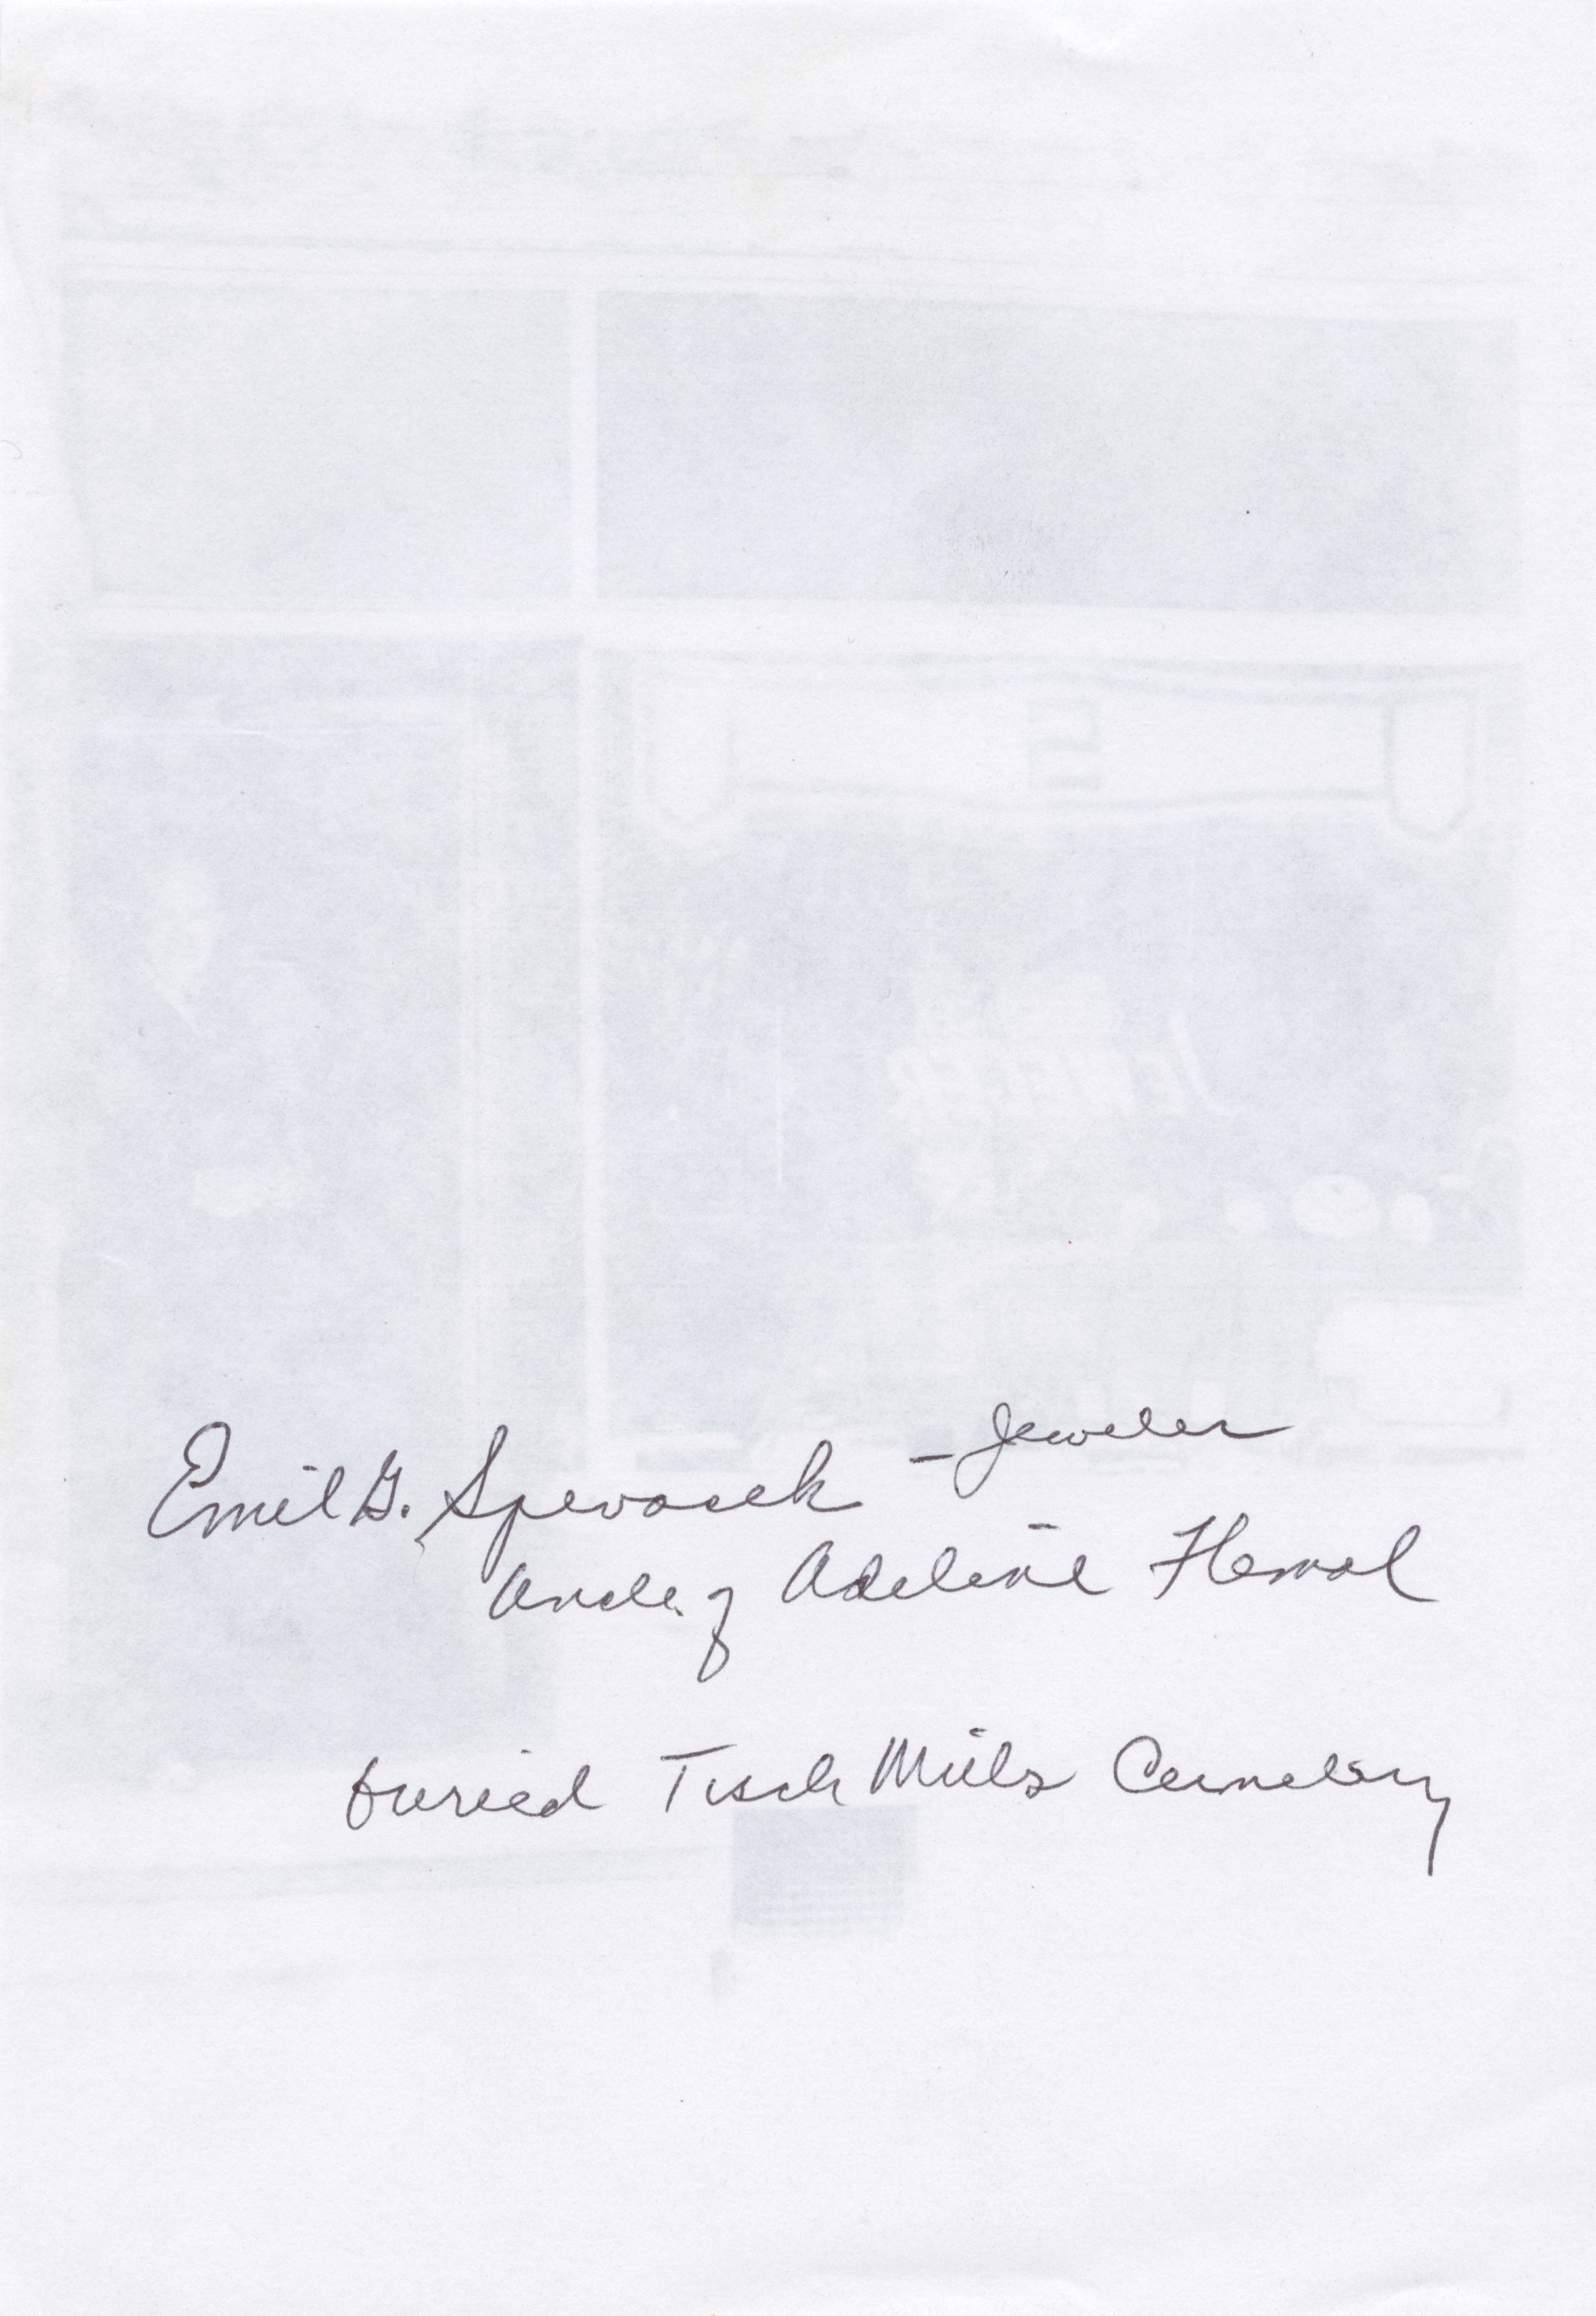 Emil G. Spevacek - Jeweler
Uncle of Adeline Hemal
buried Tisch Mills Cemetery
JEWELER